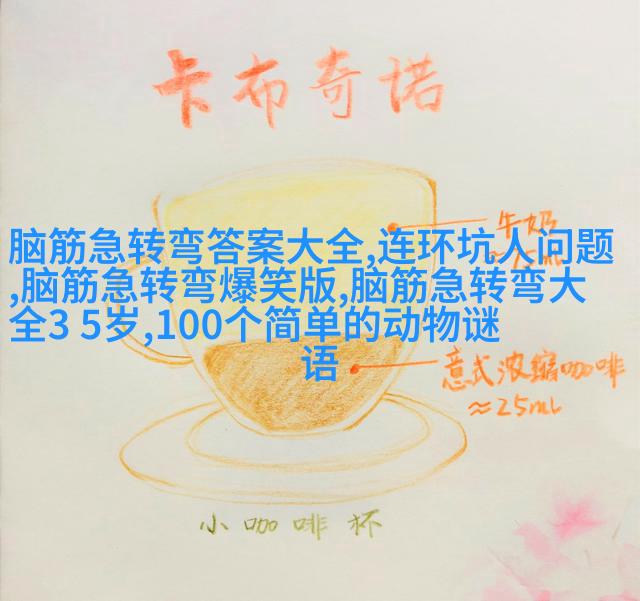 卡布奇诺
牛奶
脑筋急转弯答案大全,连环坑人问题
,脑筋急转弯爆笑版,脑筋急转弯大
全3 5岁,100个简单的动物谜
语
意式浓缩咖啡
≈25ml
小咖啡杯